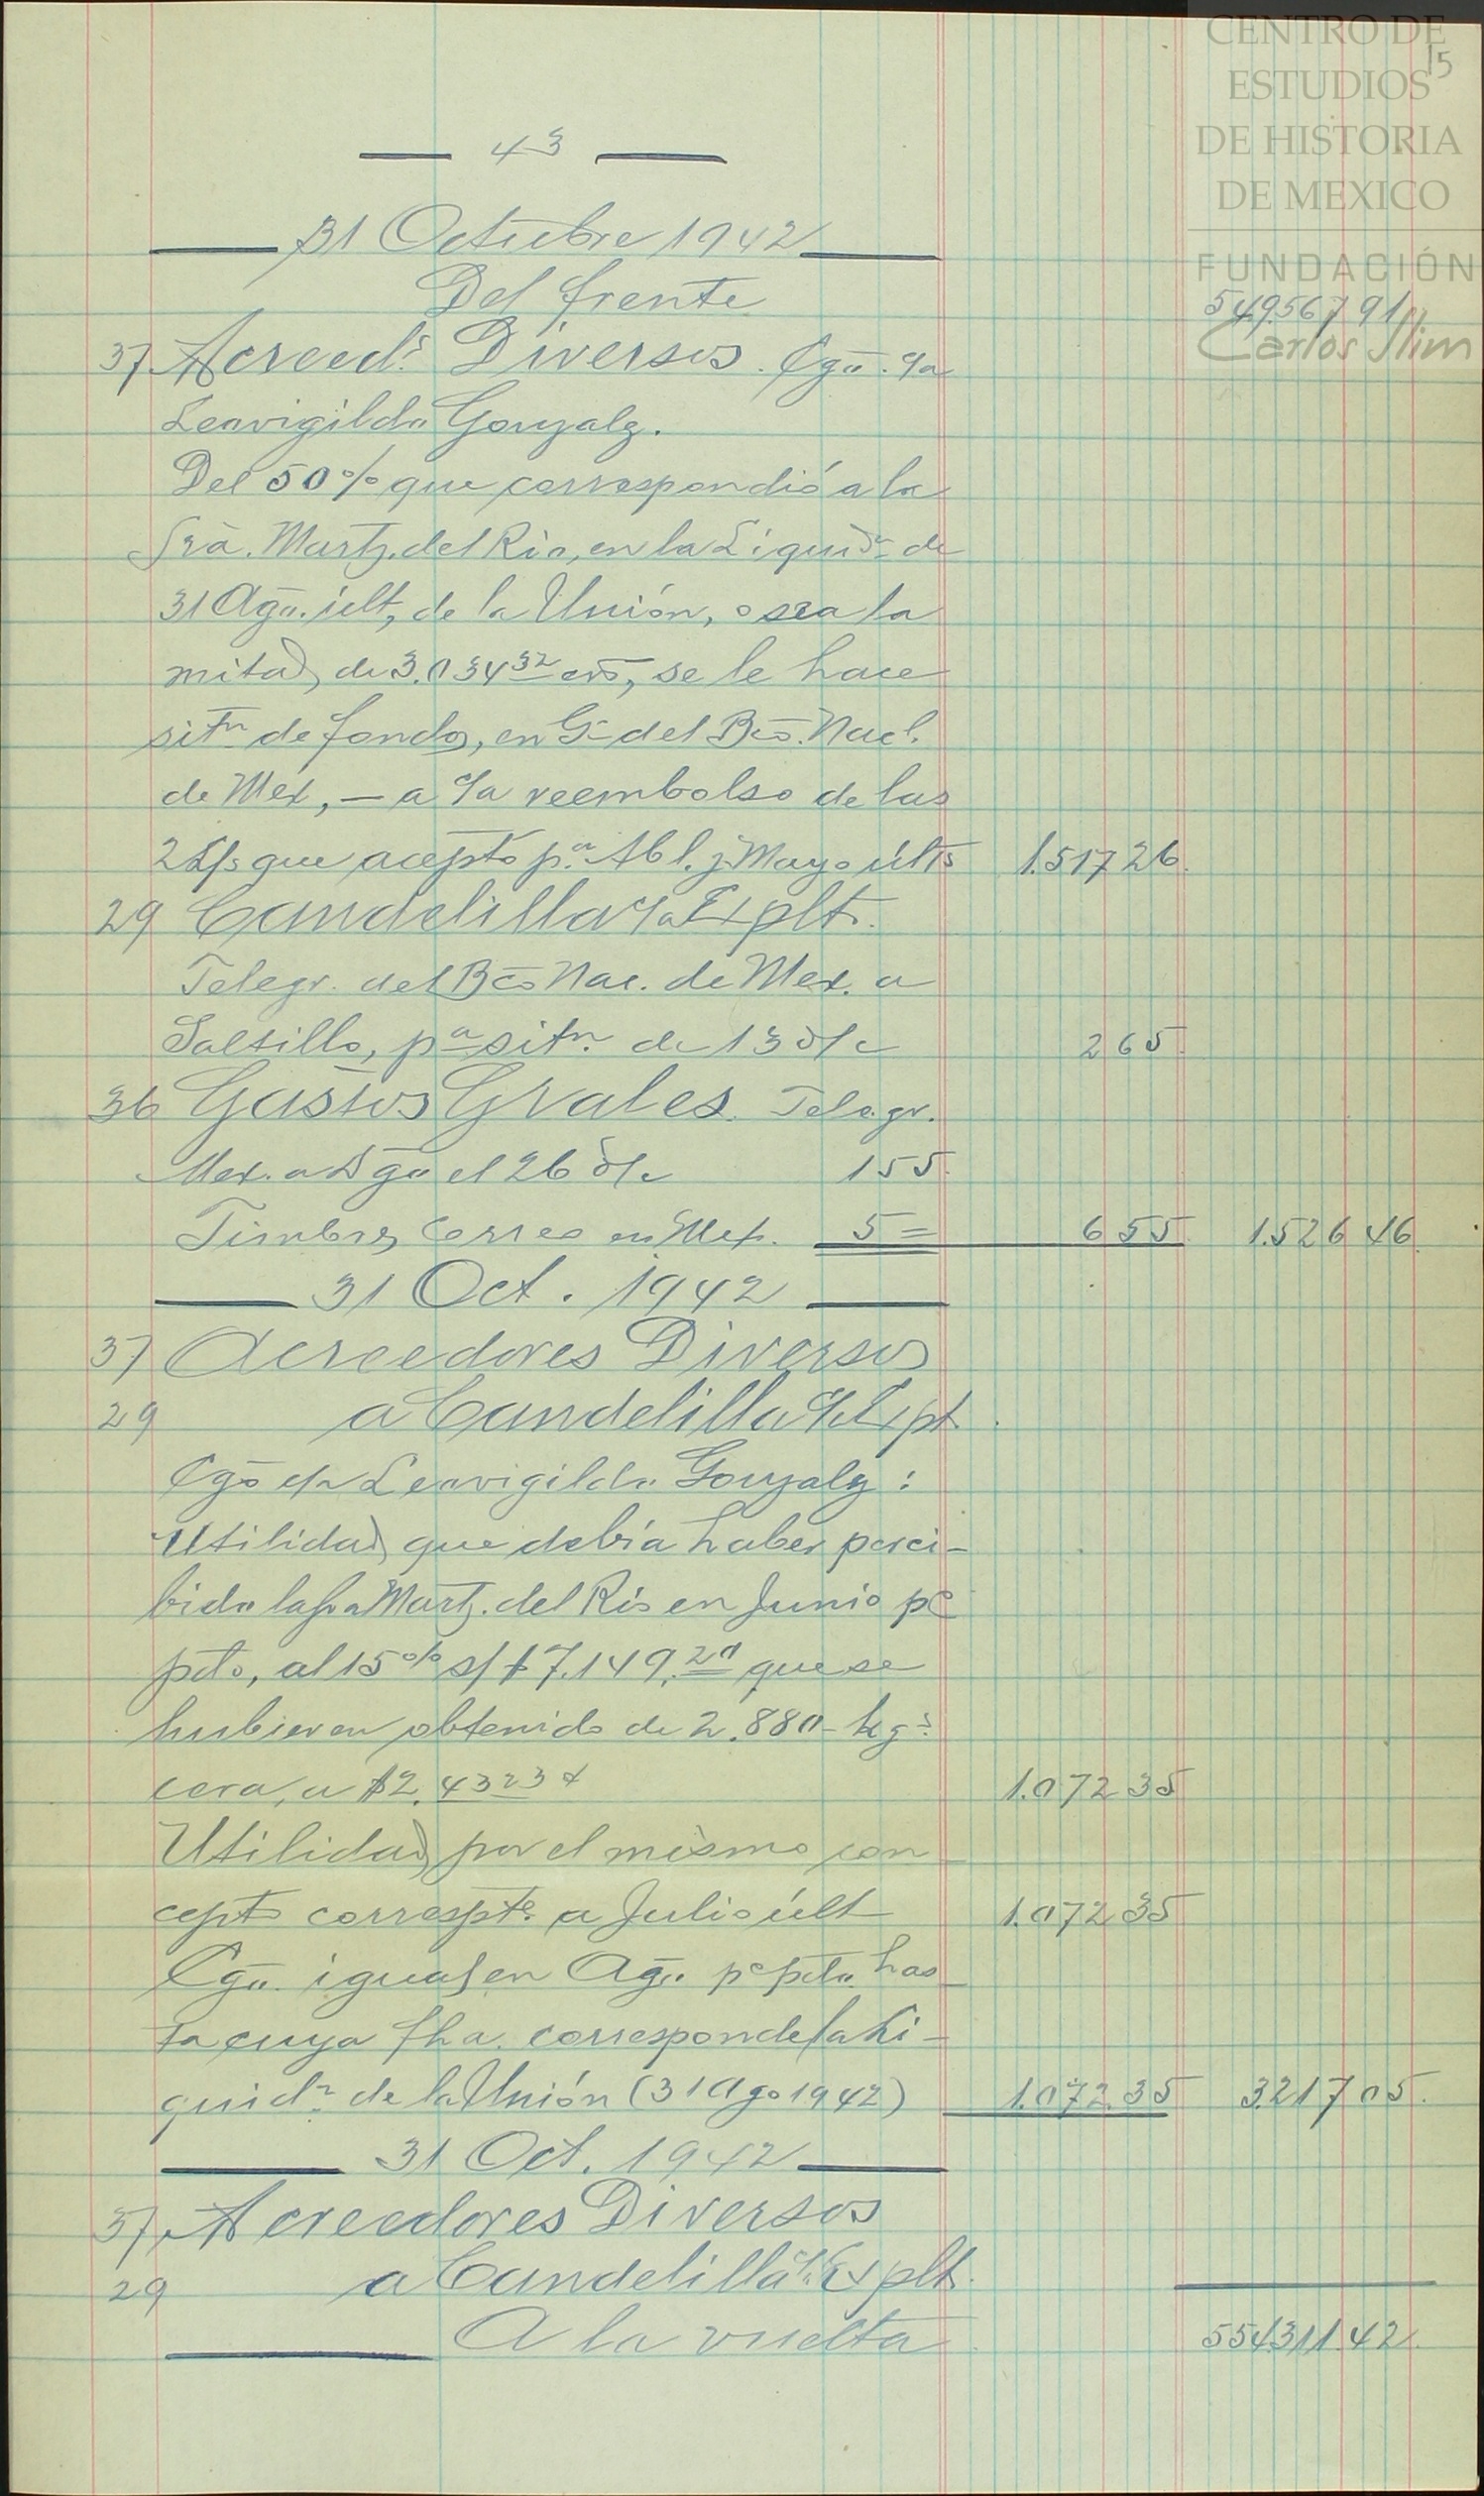 CENTRO DE
ESTUDIOS
DE HISTORIA
DE MEXICO
FUNDACIÓN
Carlos Slim
15
43
31 Octubre 1942
Del frente 549.567 91
37 Acreeds. Diversos. Cgo. c/a
Leovigildo Gonzalz.
Del 50% que correspondió a la
Sra. Martz. del Rio, en la Liquidn. de
31 Ago. últ, de la Unión, o sea la
mitad, de 3.034 32 , se le hace
sitn. de fondos, en G- del Bco. Nacl.
de Mex, — a reembolso de las
2 L/s que aceptó pa. Abl. y Mayo últs 1.517 26
29 Candelilla c/a Explt.
Telegr. del Bco Nac. de Mex. a
Saltillo, pa sitn. de 13 d/c 2 65
36 Gastos Grales. Telegr.
Mex. a Dgo el 26 d/c 1 55
Timbres correo en Mex. 5 = 6 55 1.526 46
31 Oct. 1942
37 Acreedores Diversos
29 a Candelilla c/a Expt.
Cgo c/a Leovigildo Gonzalz:
Utilidad, que debía haber perci-
bido la Sra Martz. del Rio en Junio pº
pdo, al 15% s/ $7.149.20 que se
hubieran obtenido de 2.880- kgs.
cera, a $2.4323
1.072 35
Utilidad, por el mismo con-
cepto correspte. a Julio últ 1.072 35
Cgo. igual en Ago. pº pdo. has-
ta cuya fha. corresponde la Li-
quidn. de la Unión (31 Ago 1942) 1.072 35 3.217 05
31 Oct. 1942
37 Acreedores Diversos
29 a Candelilla c/a Explt.
A la vuelta 554.311 42